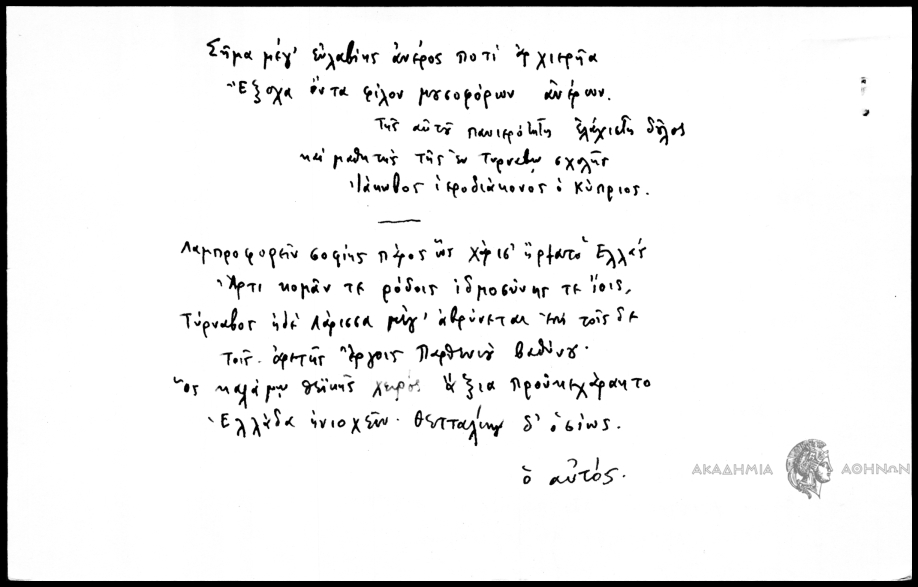 Σῆμα μέγ' εὐλαβίης ἀνέρος ποτὶ ἀρχιερῆα
Ἔξοχα ὄντα φίλον μουσοφόρων ἀνέρων.
Τῆς αὐτοῦ πανιερότητος ἐλάχιστος δοῦλος
καὶ μαθητὴς τῆς ἐν Τυρνάβῳ σχολῆς
Ἰάκωβος ἱεροδιάκονος ὁ Κύπριος.
Λαμπροφορεῖν σοφίης πάρος ἧς χάρισ' ἤρξατο Ἑλλάς
Ἄρτι κομᾶν τε ῥόδοις ἰδμοσύνης τε ἴοις,
Τύρναβος ἠδὲ Λάρισσα μέγ' ἁβρύνεται ἐπὶ τοῖς δε
τοῖς ἀρετῆς ἔργοις Παρθενίου βαθύνου·
Ὃς καλάμῳ θεϊκῆς χειρός ἄξια προὐκεχάρακτο
Ἑλλάδα ἡνιοχεῖν· Θετταλίην δ' ὁσίως.
ὁ αὐτός.
ΑΚΑΔΗΜΙΑ ΑΘΗΝΩΝ